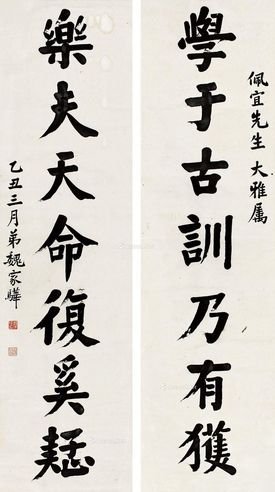 佩宜先生 大雅属
學于古訓乃有獲
樂夫天命復奚疑
乙丑三月弟魏家驊